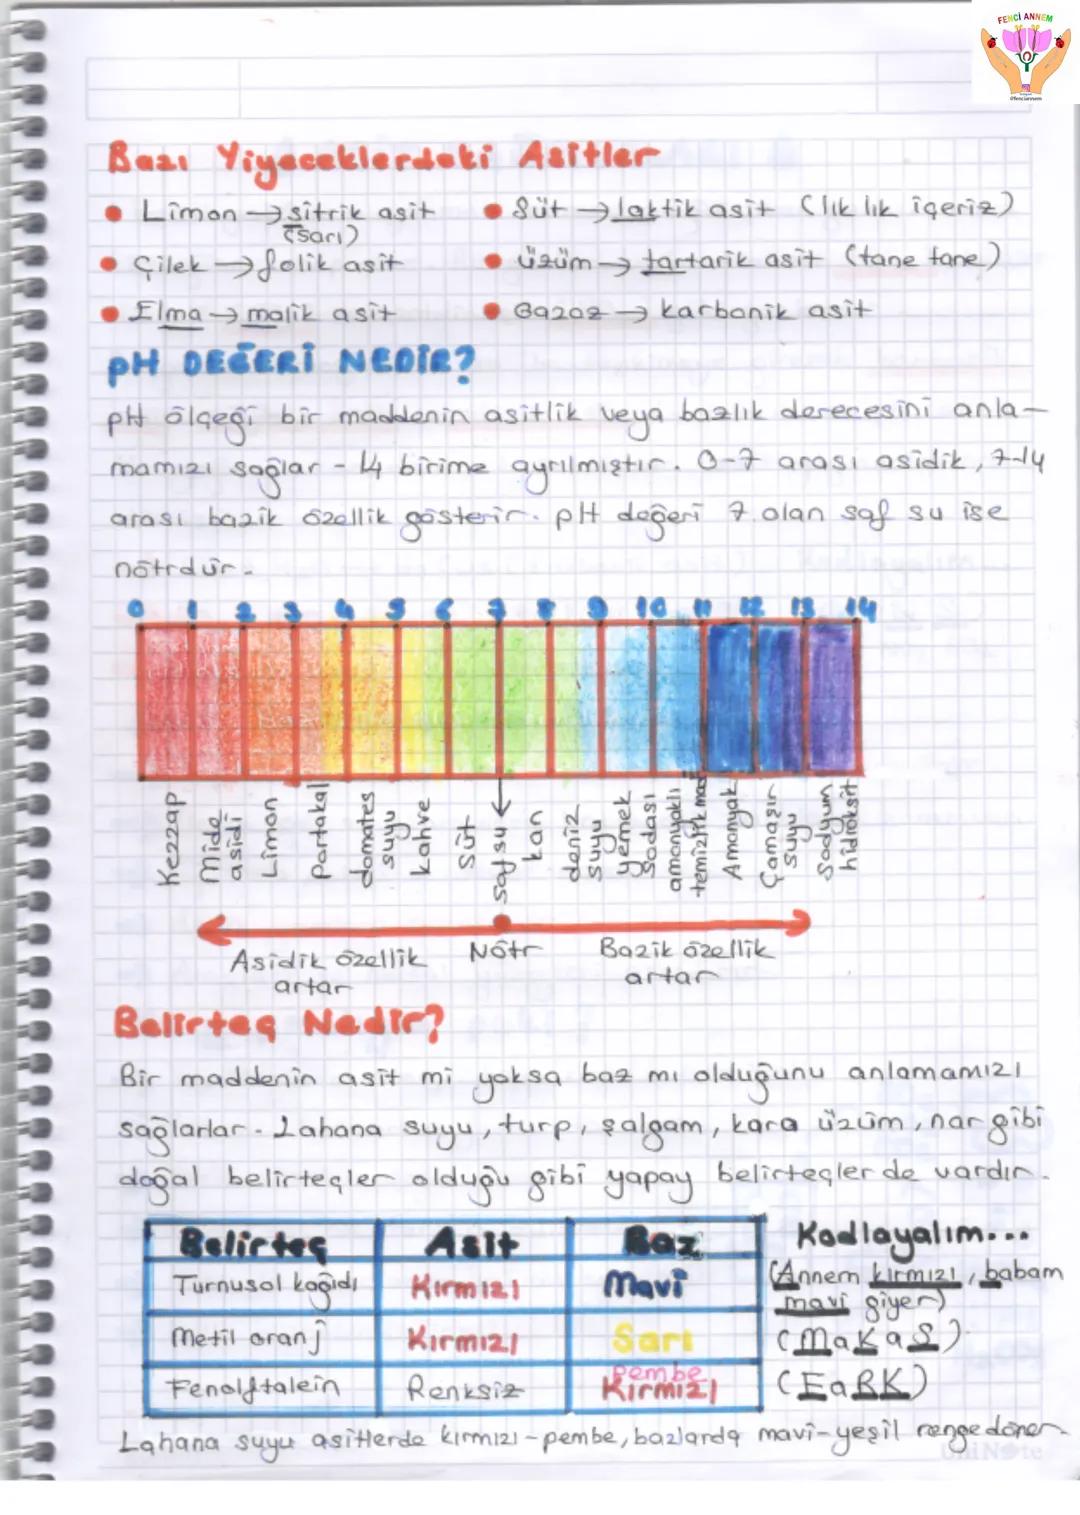 FENCİ ANNEM
@fenciannem
Bazı Yiyeceklerdeki Asitler
• Limon → sitrik asit
(Sarı)
• Süt → laktik asit (lık lık içeriz)
• Çilek → folik asit
• üzüm → tartarik asit (tane tane)
• Elma → malik asit
• Gazoz → karbonik asit
pH DEĞERİ NEDİR?
pH ölçeği bir maddenin asitlik veya bazlık derecesini anla-
mamızı sağlar - 14 birime ayrılmıştır. 0-7 arası asidik, 7-14
arası bazik özellik gösterir. pH değeri 7 olan saf su ise
nötrdür.
0 1 2 3 4 5 6 7 8 9 10 11 12 13 14
Kezzap
Mide
asidi
Limon
Portakal
domates
suyu
kahve
Süt
saf su
kan
deniz
suyu
yemek
Sodası
amonyaklı
temizlik mad
Amonyak
Çamaşır
suyu
Sodyum
hidroksit
Asidik özellik
artar
Nötr
Bazik özellik
artar
Belirteç Nedir?
Bir maddenin asit mi yoksa baz mı olduğunu anlamamızı
sağlarlar. Lahana suyu, turp, şalgam, kara üzüm, nar gibi
doğal belirteçler olduğu gibi yapay belirteçler de vardır.
Belirteç Asit Baz
Kodlayalım...
Turnusol kağıdı Kırmızı Mavi
(Annem kırmızı, babam
mavi giyer)
Metil oranj Kırmızı Sarı
(MaKaS)
Fenolftalein Renksiz pembe
Kırmızı
(EaRK)
Lahana suyu asitlerde kırmızı-pembe, bazlarda mavi-yeşil renge döner
UniNote